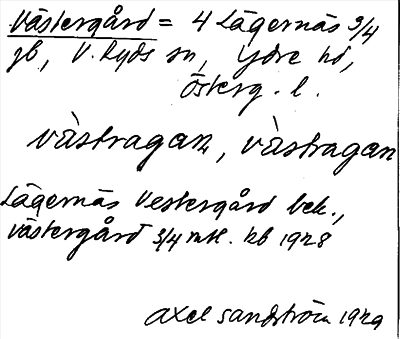 Västergård = 4 Lägernäs 3/4
jb, V. Ryds sn, Ydre hd,
Österg. l.
vàstragan, vàstragan
Lägernäs Vestergård bek.,
Västergård 3/4 mtl. kb 1928
Axel Sandström 1929